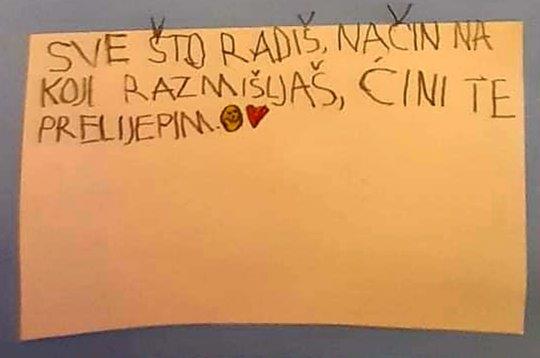 SVE ŠTO RADIŠ, NAČIN NA
KOJI RAZMIŠLJAŠ, ĆINI TE
PRELIJEPIM.